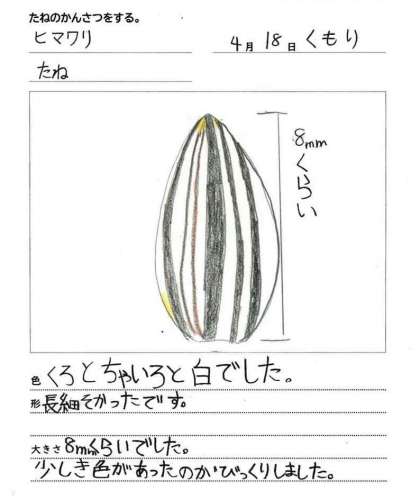 たねのかんさつをする。
ヒマワリ
4月18日くもり
たね
8mm
くらい
色くろとちゃいろと白でした。
形長細そかったです。
大きさ8mmくらいでした。
少しき色があったのがびっくりしました。